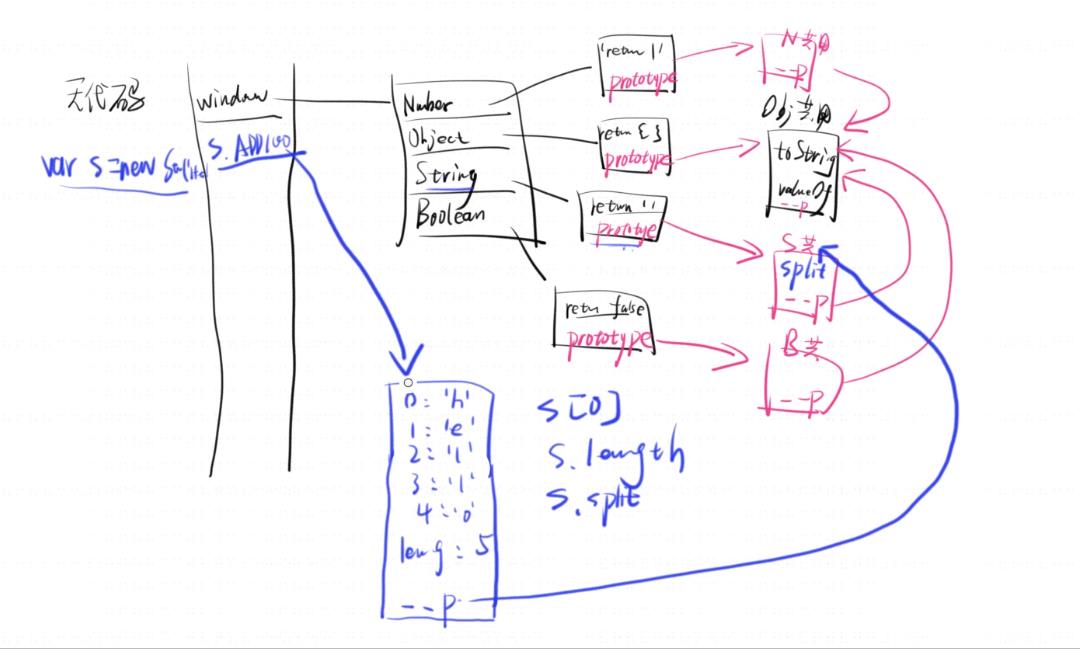 无代码
window
var s=new
S. ADD100
Number
Object
String
Boolean
'return 1'
prototype
retun { }
prototype
return ''
prototye
retun false
prototype
N共用
--p
Obj共用
toString
valueOf
--p
S共
split
--p
B共
--p
0: 'h'
1: 'e'
2: 'l'
3: 'l'
4: 'o'
leng: 5
--p
s[0]
s.length
s.split